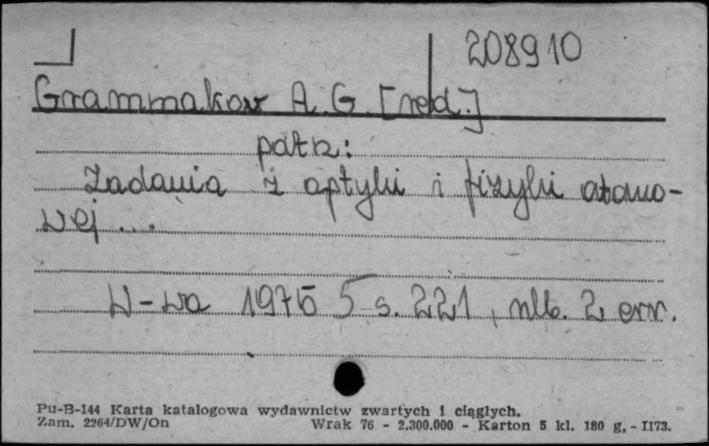 208910
Grammakov A. G. [red.]
patrz:
Zadania z optyki i fizyki atomo-
wej ...
W-wa 1975 5 s. 221, nlb. 2 err.
Pu-B-144 Karta katalogowa wydawnictw zwartych i ciągłych.
Zam. 2264/DW/On Wrak 76 - 2.300.000 - Karton 5 kl. 180 g, - II73.